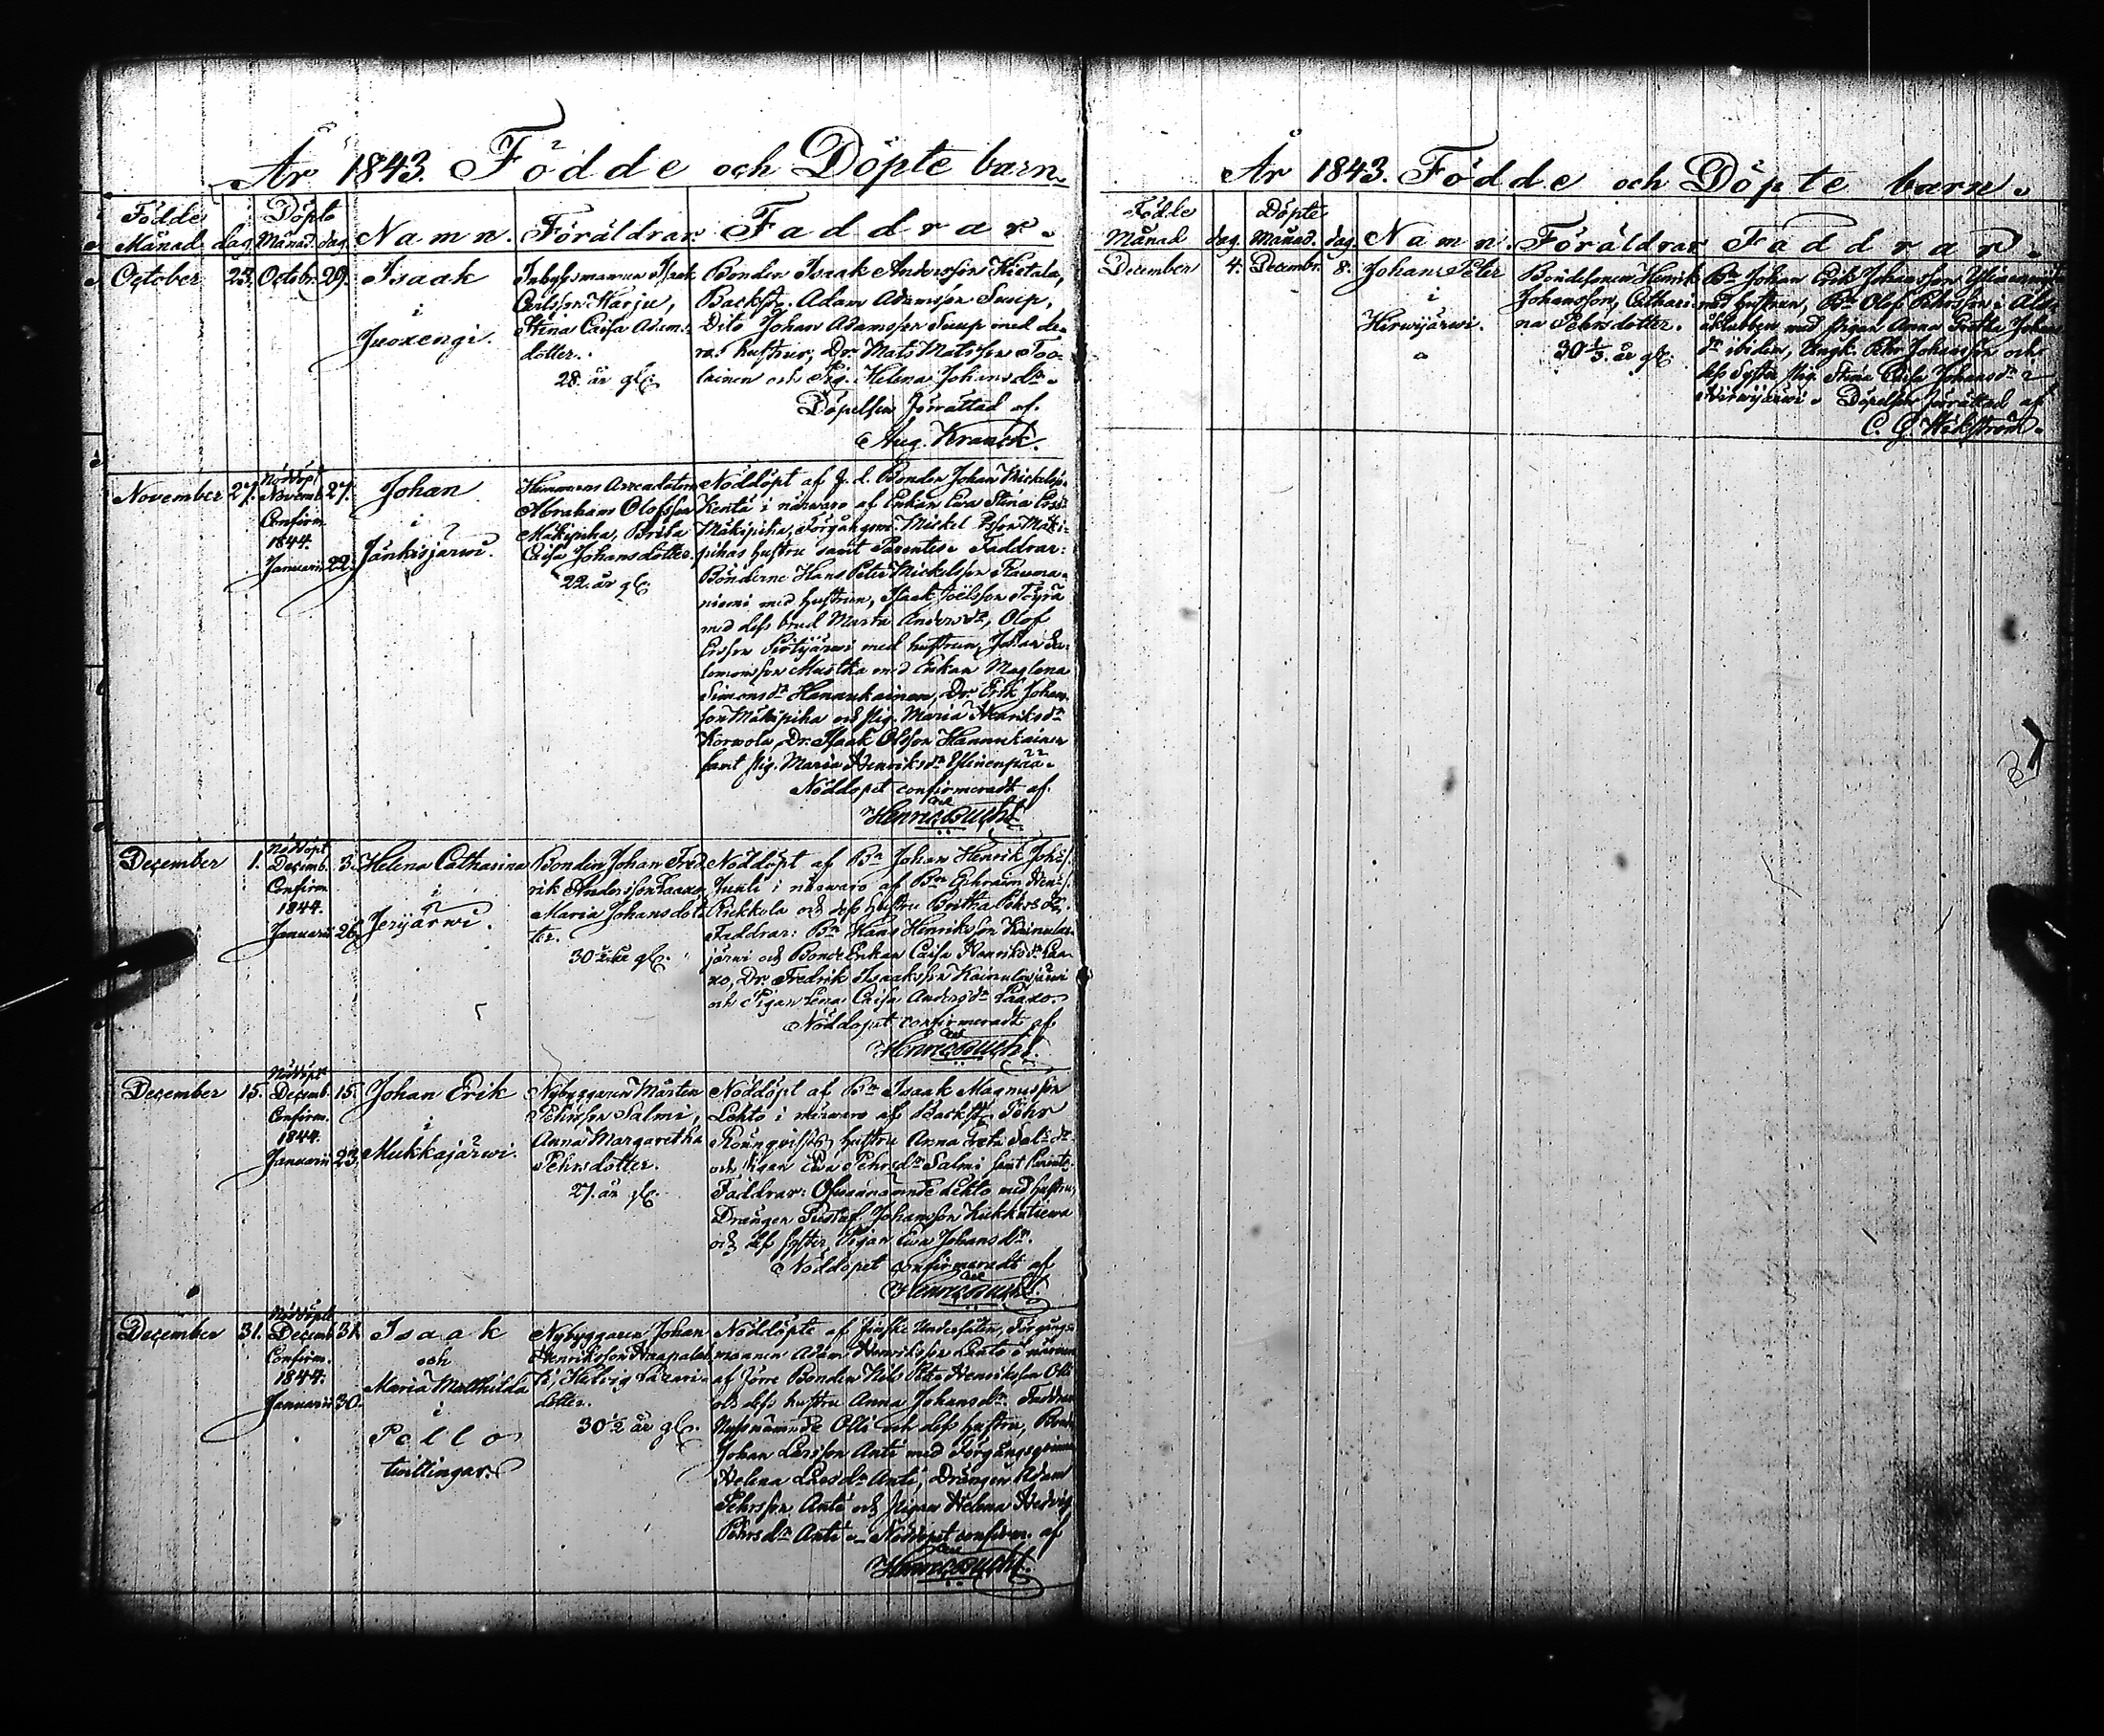 År 1843. Födde och Döpte barn.
Födde Döpte
Månad. dag. Månad. dag. Namn. Föräldrar. Faddrar.
October 23. Octobr. 29. Isaak
i
Juoxengi.
Inhysesmannen Isaak
Carlsson Harju,
Stina Caisa Adams
dotter.
28. år gl:
Bonden Isaak Andersson Kietala,
Backst. Adam Adamsson Suup,
Dito Johan Adamsson Suup med de
ras hustrur, Dr. Mats Matsson Too-
lainen och Pig. Helena Johansdr.
Döpelsen förrättad af
Aug. Kranck.
November 27. Nöddöpt
Novemb. 27.
Confirm.
1844.
Januarii 22.
Johan
i
Jänkisjärwi.
Hemmans Arrendatorn
Abraham Olofsson
Mäkipiha, Brita
Caisa Johansdotter.
22. år gl.
Nöddöpt af f. d. Bonden Johan Mickelss.
Kentä i närwaro af Enkan Ewa Stina Ersd.
Mäkipiha, Förgångsm. Mickel Ersson Mäki-
pihas hustru samt Parentes. Faddrar:
Bönderne Hans Peter Mickelsson Rauma-
niemi med hustrun, Isaak Joelsson Töyrä
med dess brud Marta Andersdr, Olof
Ersson Pirttijärwi med hustrun, Johan Sa-
lomonsson Mustka med Enkan Maglena
Simonsdr Hannukainen, Dr. Erik Johans
son Mäkipiha och pig. Maria Henriksdr
Korwola, Dr. Isaak Olsson Hannukainen
samt pig. Maria Henriksdr Ylinenpää.
Nöddopet confirmeradt af
Henric Bucht.
December 1. Nöddöpt
Decemb. 3.
Confirm.
1844.
Januarii 26.
Helena Catharina
i
Jerijärwi.
Bonden Johan Fred
rik Andersson Laaxo,
Maria Johansdot-
ter.
30 år gl.
Nöddöpt af Bn Johan Henrik Johss.
Junki i närwaro af Bn Ephraim Hens.
Riekkola och dess hustru Britha Pehrsdr.
Faddrar: Bn Hans Henriksson Kainulas-
järwi och Bonde Enkan Caisa Henriksdr Laa-
xo, Dr. Fredrik Isaaksson Kainulasjärwi
och Pigan Lena Caisa Andersdr Laaxo.
Nöddopet confirmeradt af
Henric Bucht.
December 15. Nöddöpt
Decemb. 15.
Confirm.
1844.
Januarii 23.
Johan Erik
i
Mukkajärwi.
Nybyggaren Mårten
Pehrsson Salmi,
Anna Margaretha
Pehrsdotter.
27. år gl.
Nöddöpt af Bn Isaak Magnusson
Lehto i närwaro af Backst. Pehr
Rönnqvists hustru Anna Greta Salsdr.
och Pigan Ewa Pehrsdr Salmi samt Parents.
Faddrar: Ofwannämnde Lehto med hustru,
Drängen Gustaf Johansson Kukkutiewa
och dess syster Pigan Ewa Johansdr.
Nöddopet confirmeradt af
Henric Bucht.
December 31. Nöddöpte
Decemb. 31.
Confirm.
1844.
Januarii 30.
Isaak
och
Maria Mathilda
i
Pello
twillingar.
Nybyggaren Johan
Henriksson Haapalat
ti, Helvig Lazari-
dotter.
30 1/2 år gl.
Nöddöpte af finske Undersåten, Förgångs
mannen Adam Henriksson Lento i närwaro
af förre Bonden Nils Petter Henriksson Olli
och dess hustru Anna Johansdr. Faddrar
Nyssnämnde Olli och dess hustru, Bonden
Johan Larsson Anti med Förgångsqvinnan
Helena Larsdr Anti, Drängen Adam
Pehrsson Anti och pigan Helena Hedvig
Pehrsdr Anti. Nöddopet confirm. af
Henric Bucht.
År 1843. Födde och Döpte barn.
Födde Döpte
Månad dag. Månad. dag. Namn. Föräldrar Faddrar.
December 4. Decembr. 8. Johan Peter
i
Hirwijärwi.
Bondesonen Henrik
Johansson, Cathari-
na Pehrsdotter.
30 1/3. år gl.
Bn Johan Erik Johansson
med hustrun, Bn Olof Pehrsson i
med pigan Anna Greta Johans
dr ibidem, Ungk. Pehr Johansson och
dess syster pig. Stina Caisa Johansdr i
Hirwijärwi. Döpelsen förrättad af
C. G. Wikström.